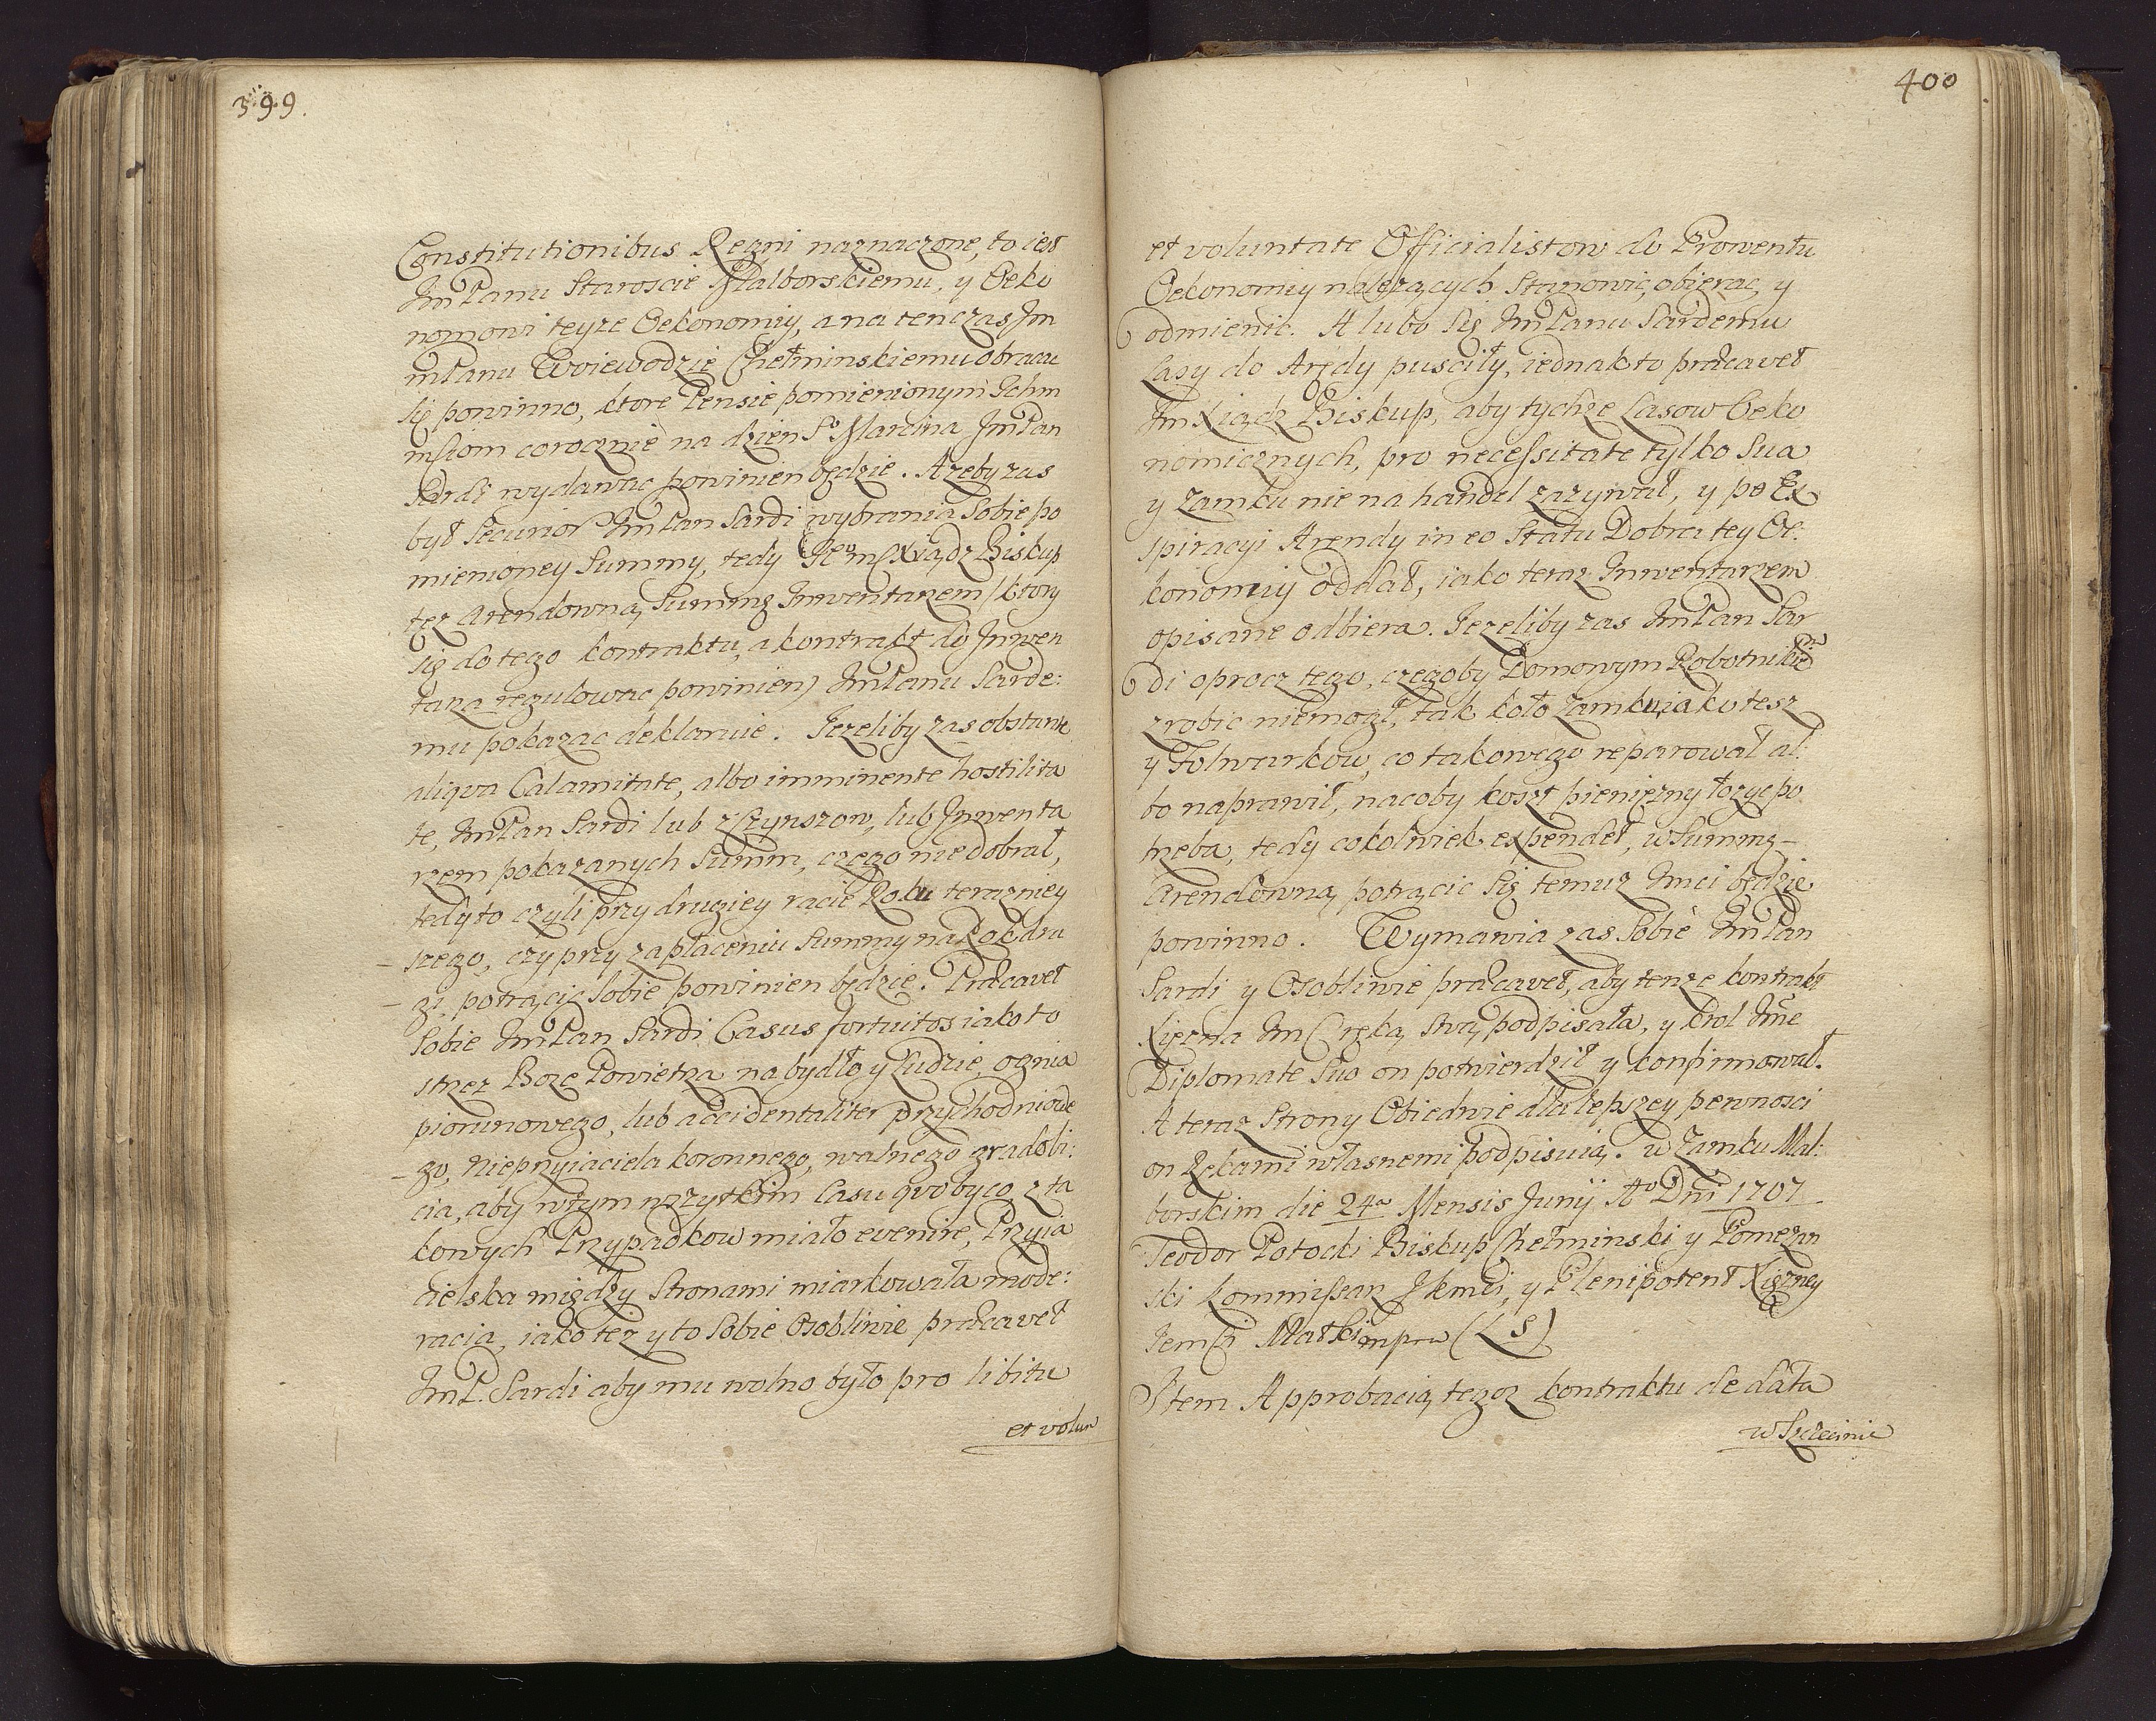 399.
Constitutionibus Regni naznaczone, to iest
ImPanu Staroscie Malborskiemu, y Oeko
nomowi teyze Oekonomiy, a na tenczas Jm
mPanu Woiewodzie Chełminskiemu obracac
się powinno, ktore Pensie pomienionym Ichm
mściom corocznie na dzien So Marcina ImPan
Sardi wydawac powinien będzie. A zeby zas
był Securior ImPan Sardi wybrania Sobie po
mienioney Summy, tedy Ieo mś Xiądz Biskup
tęz Arendowną Summę Inwentarzem /ktory
się do tego kontraktu, a kontrakt do Inwen
tarza regulowac powinien) ImPanu Sarde:
mu pokazac deklaruie. Iezeliby zas obstante
aliqva Calamitate, albo imminente hostilita
te, ImPan Sardi lub z Czynszow, lub Inwenta
rzem pokazanych Summ, czego nie dobrał,
tedy to czyli przy drugiey racie Roku terazniey
szego, czy przy zapłaceniu Summy na Rok dru
gi, potrącic Sobie powinien będzie. Præcavet
Sobie ImPan Sardi Casus fortuitos iako to
strzez Boze Powietrza na bydło y Ludzie, ognia
piorunowego, lub accidentaliter przychodniowe
go, Nieprzyiaciela koronnego, walnego gradobi:
cia, aby w tym wszytkim Casu qvo by co z ta
kowych Przypadkow miało evenire, Przyia
cielska między Stronami miarkowała mode:
racia, iako tez y to Sobie Osobliwie præcavet
ImP. Sardi aby mu wolno było pro libitu
et volun
400
et voluntate Officialistow do Prowentu
Oekonomiy nalezących Stanowic, obierac, y
odmienic. A lubo Się ImPanu Sardemu
Lasy do Arędy pusciły, iednak to præcavet
Im Xiądz Biskup, aby tychze Lasow Oeko
nomicznych, pro necessitate tylko Sua
y Zamku nie na handel zazywał, y po Ex
spiracyi Arendy in eo Statu Dobra tey Oe:
konomiy oddał, iako teraz Inwentarzem
opisane odbiera. Iezeliby zas ImPan Sar
di oprocz tego, czegoby Domowym Robotnikiem
zrobic niemogł, tak koło Zamku, iako tesz
y Folwarkow, co takowego reparował al:
bo naprawił, na coby koszt pieniężny łozyc po
trzeba, tedy cokolwiek expendet, w Summę
Arendowną potrącic Się temuz Imci będzie
powinno. Wymawia zas Sobie ImPan
Sardi y Osobliwie præcavet, aby tenze kontrakt
Xięzna Im Ręką Swą podpisała, y Krol Ime
Diplomate Suo on potwierdził y konfirmował.
A teraz Strony Obiedwie dla lepszey pewnosci
on Rękami własnemi podpisuią. w Zamku Mal:
borskim die 24a Mensis Junij Ao Dni 1707
Teodor Potocki Biskup Chełminski y Pomezan
ski Kommissarz Ikmci, y Plenipotent Xięzney
Iemści Matki mpra (LS)
Item Approbacią tegoz kontraktu de data
w Szczecinie